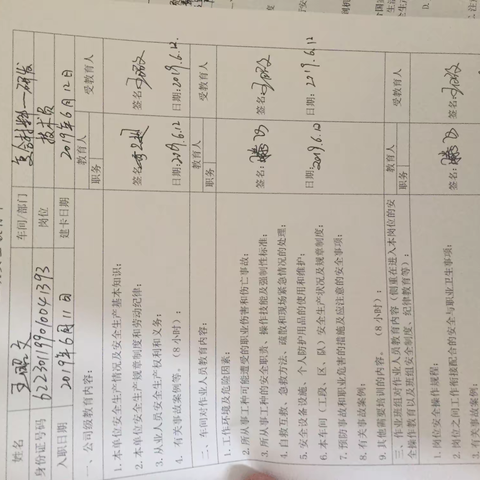 姓名 车间/部门 复合材料—研发
身份证号码 岗位 技术员
入职日期 2019年6月11日 建卡日期 2019年6月12日
一、公司级教育内容: 教育人 受教育人
职务
1.本单位安全生产情况及安全生产基本知识;
2.本单位安全生产规章制度和劳动纪律;
签名 签名
3.从业人员安全生产权利和义务;
4. 有关事故案例等。(8小时); 日期:2019.6.12 日期:2019.6.12
二、车间对作业人员教育内容: 教育人 受教育人
职务
1.工作环境及危险因素;
2.所从事工种可能遭受的职业伤害和伤亡事故;
3.所从事工种的安全职责、操作技能及强制性标准; 签名: 签名:
4.自救互救、急救方法、疏散和现场紧急情况的处理;
5.安全设备设施、个人防护用品的使用和维护;
6.本车间(工段、区、队)安全生产状况及规章制度; 日期: 日期: 2019.6.12
7.预防事故和职业危害的措施及应注意的安全事项;
8.有关事故案例;
9.其他需要培训的内容。(8小时);
三、作业班组对作业人员教育内容(侧重在进入本岗位的安全操作教育以及班组安全制度、纪律教育等): 教育人 受教育人
职务
1.岗位安全操作规程;
2.岗位之间工作衔接配合的安全与职业卫生事项; 签名: 签名:
3.有关事故案例;